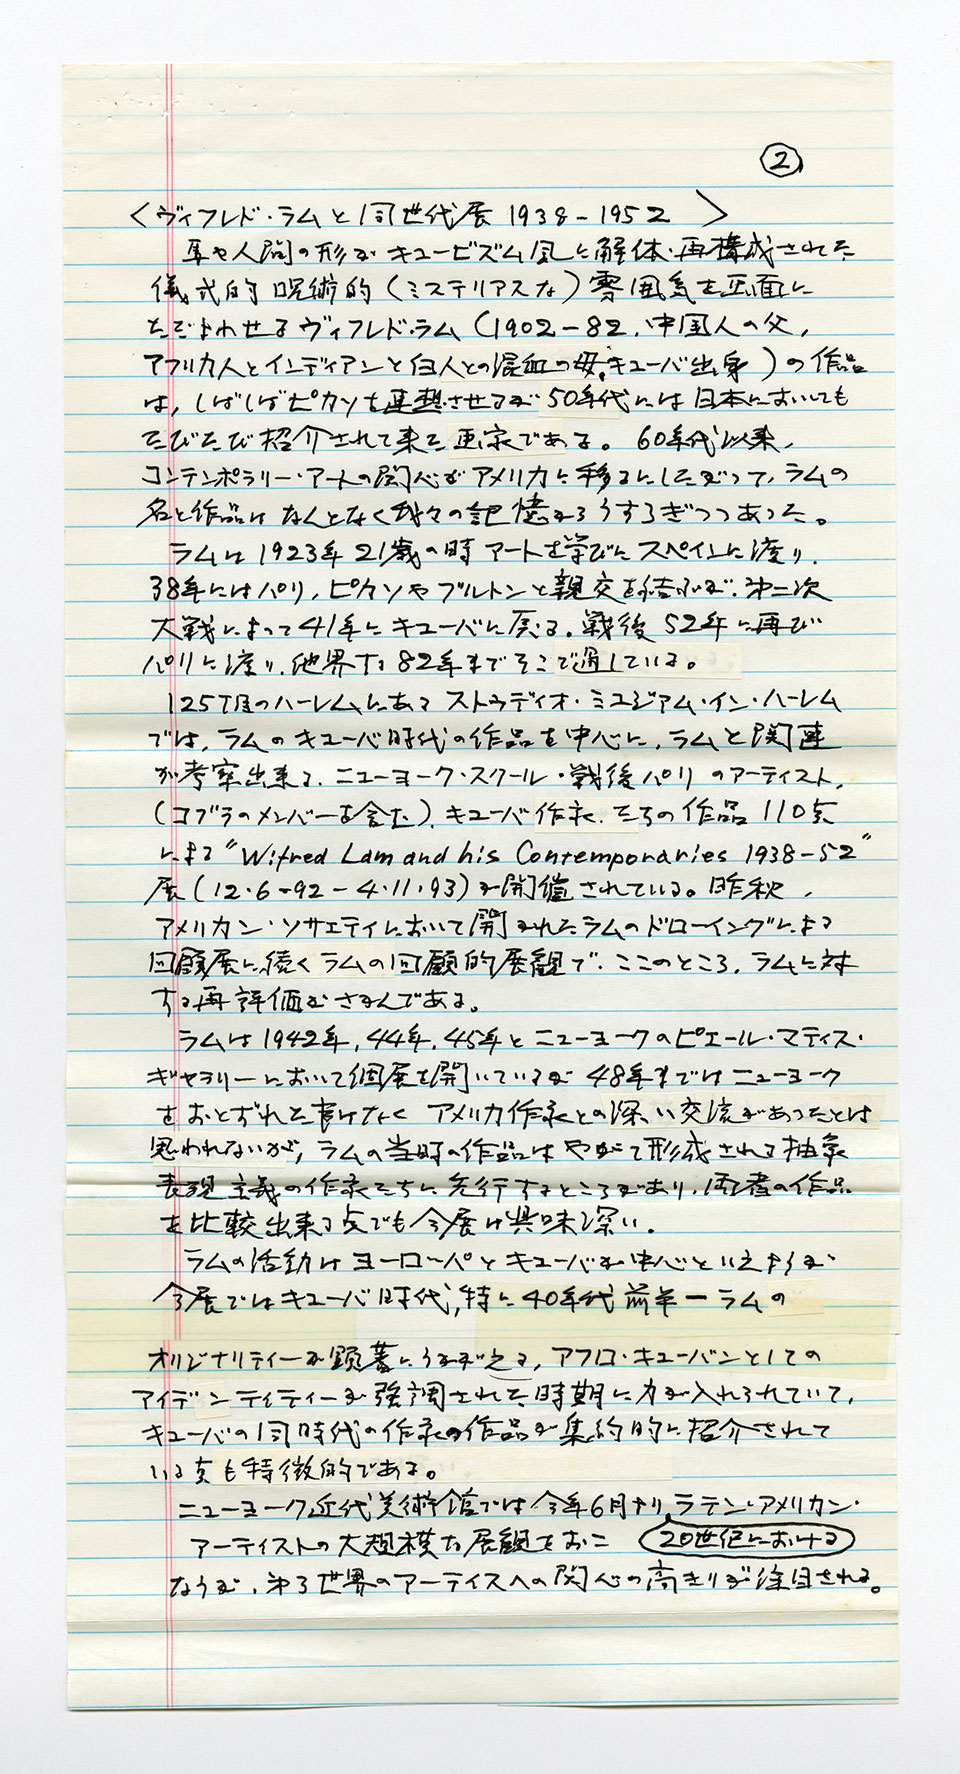 ②
〈ヴィフレド・ラムと同世代展 1938-1952 〉
草や人間の形がキュービズム風に解体・再構成された
儀式的呪術的(ミステリアスな)雰囲気を画面に
ただよわせるヴィフレド・ラム(1902-82, 中国人の父,
アフリカ人とインディアンと白人との混血の母,キューバ出身)の作品
は,しばしばピカソを連想させるが50年代には日本においても
たびたび紹介されて来た画家である。60年代以来,
コンテンポラリー・アートの関心がアメリカに移るにしたがって,ラムの
名と作品はなんとなく我々の記憶からうすらぎつつあった。
ラムは1923年21歳の時アートを学びにスペインに渡り,
38年にはパリ,ピカソやブルトンと親交を結ぶが,第二次
大戦によって41年にキューバに戻る。戦後52年に再び
パリに渡り,他界する82年までそこで過している。
125丁目のハーレムにあるストゥディオ・ミュジアム・イン・ハーレム
では,ラムのキューバ時代の作品を中心に,ラムと関連
が考察出来る,ニューヨーク・スクール・戦後パリのアーティスト,
(コブラのメンバーを含む),キューバ作家,たちの作品110点
による“Wifred Lam and his Contemporaries 1938-52”
展(12・6-92-4・11・93)が開催されている。昨秋,
アメリカン・ソサエティにおいて開かれたラムのドローイングによる
回顧展に続くラムの回顧的展観で,ここのところ,ラムに対
する再評価がさかんである。
ラムは1942年,44年,45年とニューヨークのピエール・マティス・
ギャラリーにおいて個展を開いているが48年まではニューヨーク
をおとずれた事はなくアメリカ作家との深い交流があったとは
思われないが,ラムの当時の作品はやがて形成される抽象
表現主義の作家たちに先行するところがあり,両者の作品
を比較出来る点でも今展は興味深い.
ラムの活動はヨーロッパとキューバが中心といえようが
今展ではキューバ時代,特に40年代前半ーラムの
オリジナリティーが顕著にうかがえる,アフロ・キューバンとしての
アイデンティティーが強調された時期に力が入れられていて,
キューバの同時代の作家の作品が集約的に紹介されて
いる点も特徴的である。
ニューヨーク近代美術館では今年6月より,ラテン・アメリカン・
アーティストの大規模な展観をおこ 20世紀における
なうが,第3世界のアーティストへの関心の高まりが注目される。